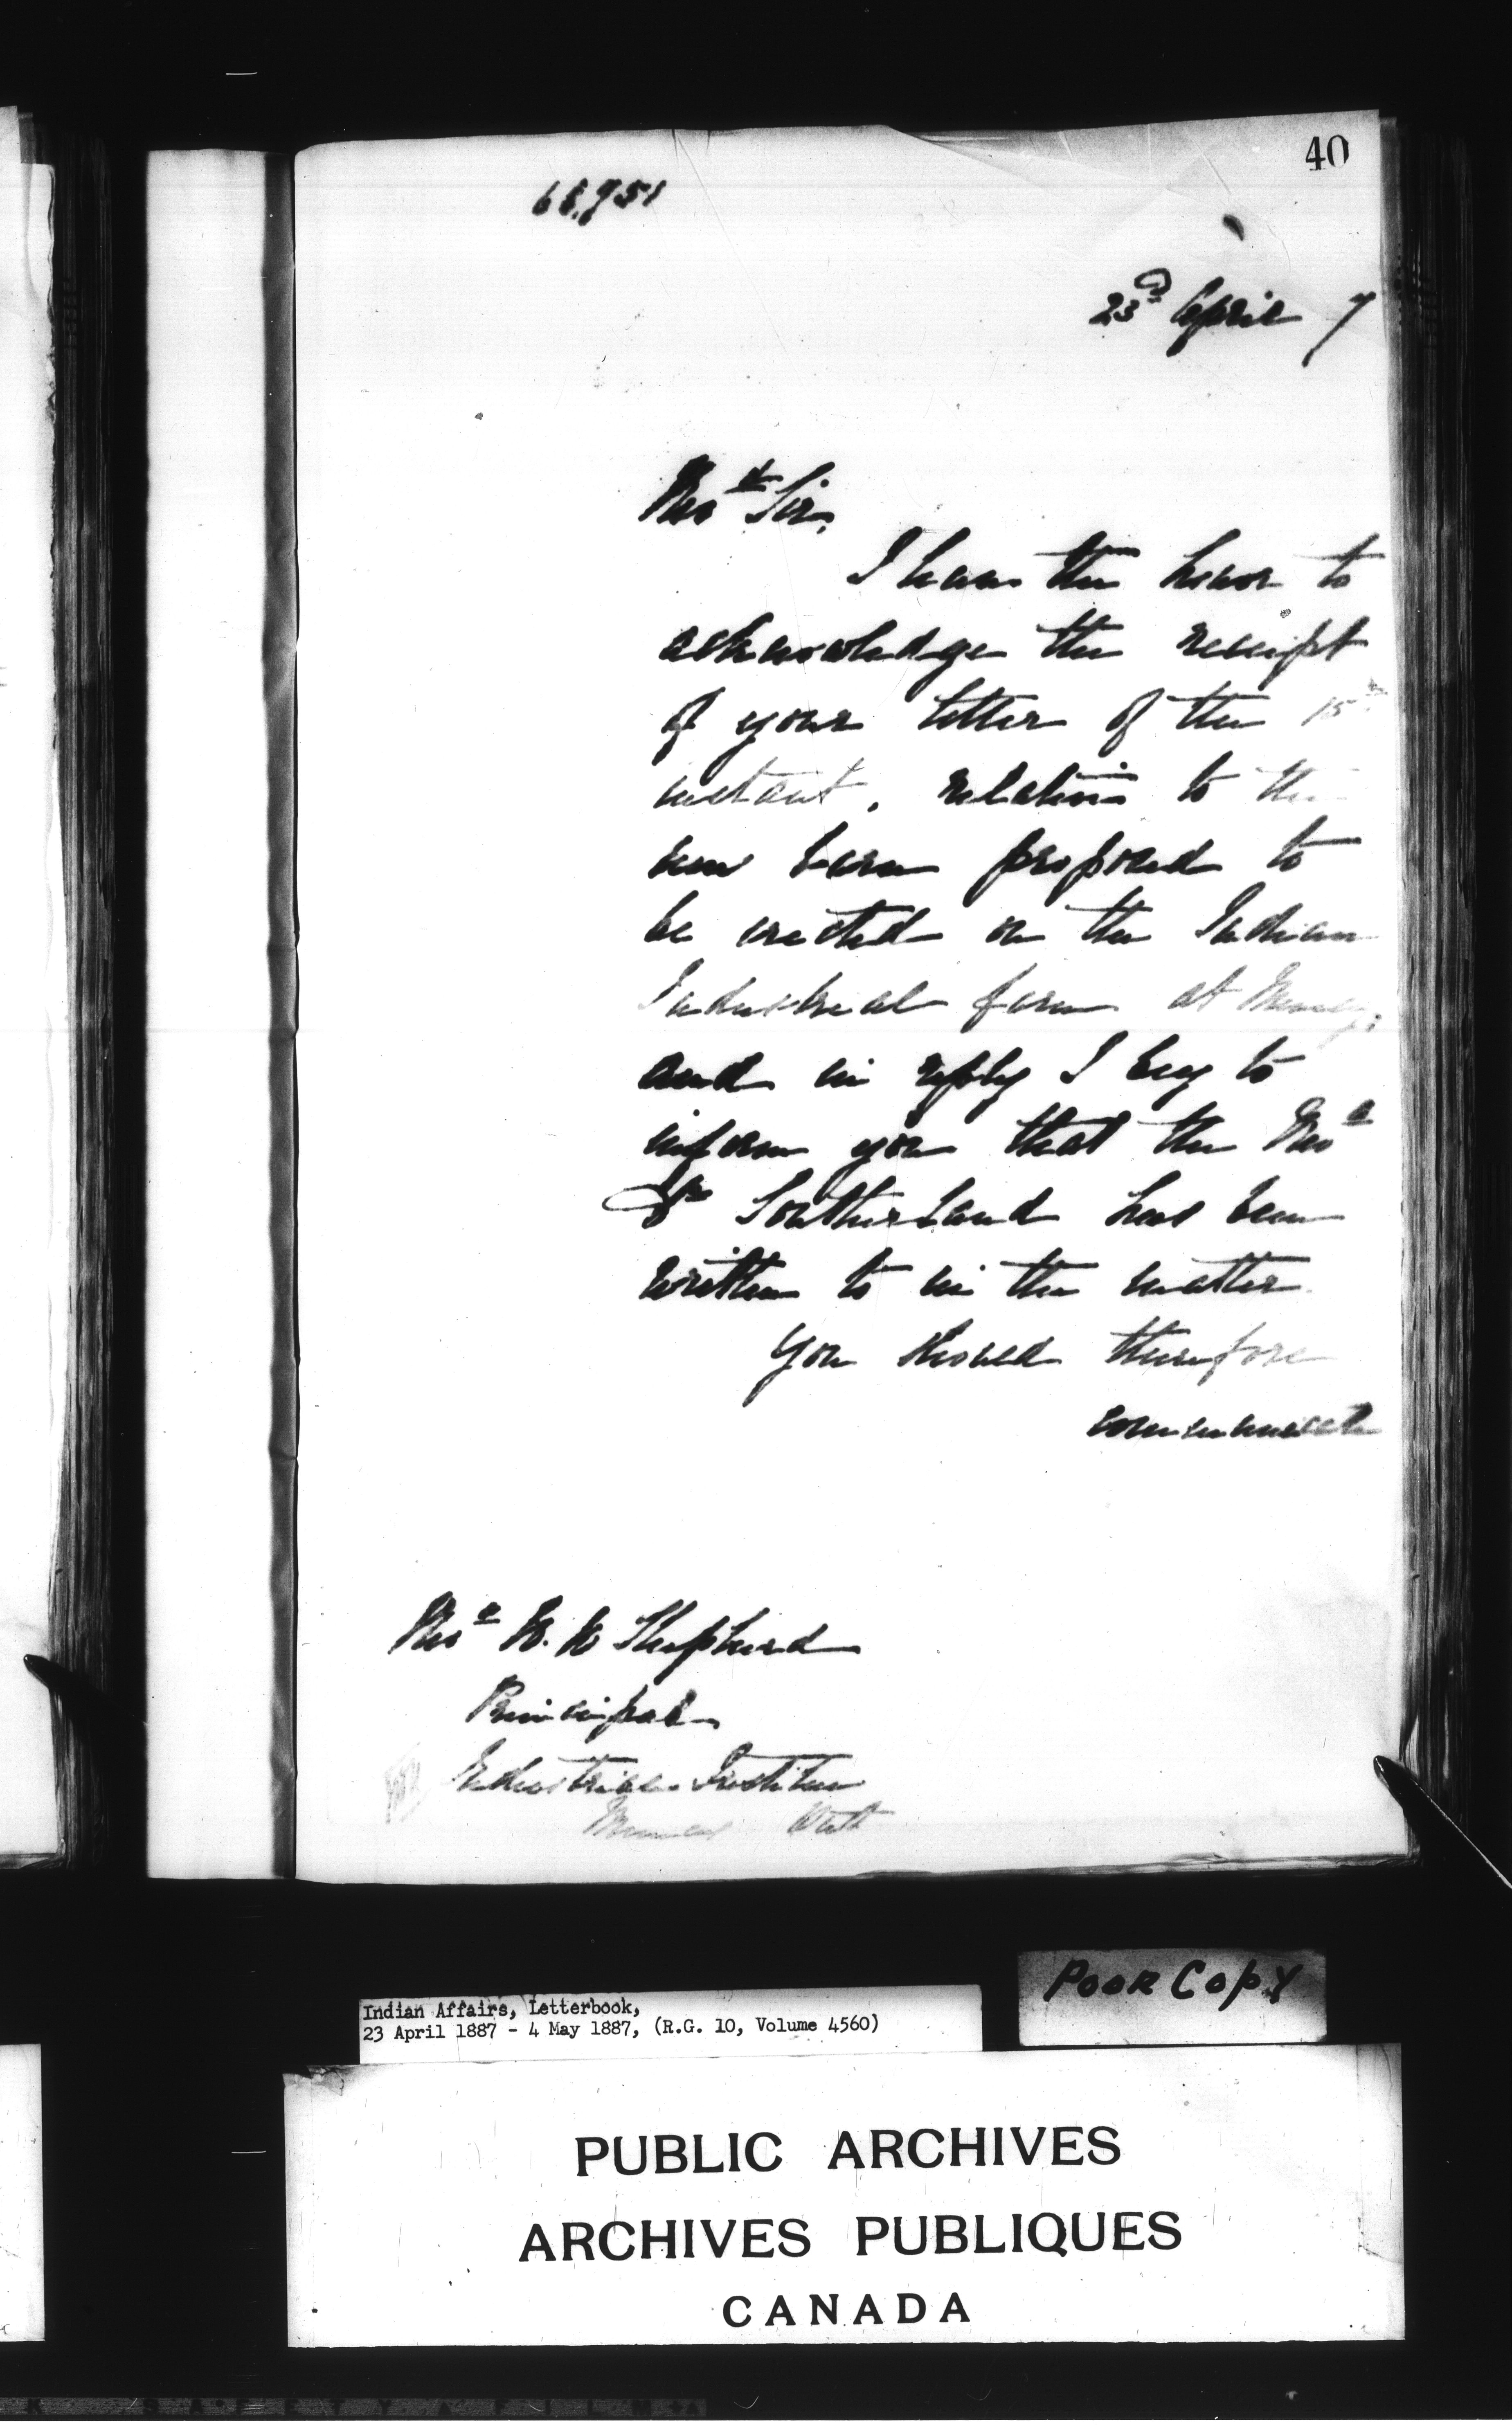 40
23rd April 7
Revd Sir,
I have the honor to
acknowledge the receipt
of your letter of the 15th
instant, relative to the
new barn proposed to
be erected on the Indian
Industrial farm at Muncey,
and in reply I beg to
inform you that the Revd
Dr Sutherland has been
written to in the matter.
You should therefore
communicate
Revd W. W. Shepherd
Principal
Industrial Institute
Muncey Ont
Indian Affairs, Letterbook,
23 April 1887 - 4 May 1887, (R.G. 10, Volume 4560)
POOR COPY
PUBLIC ARCHIVES
ARCHIVES PUBLIQUES
CANADA